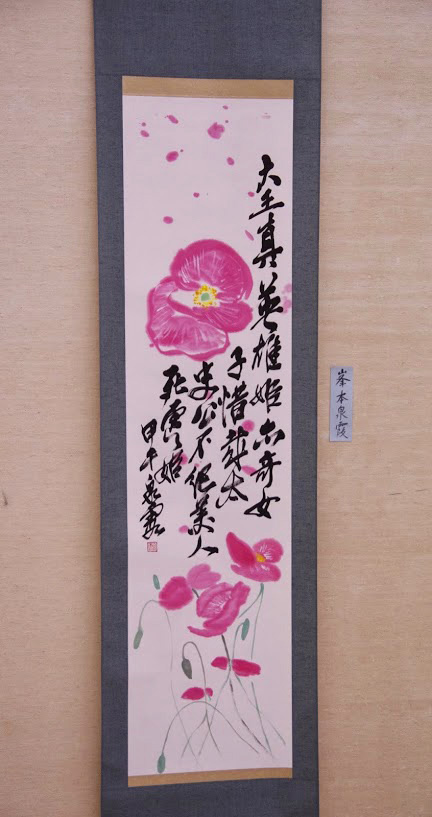 大王真英雄姫亦奇女
子惜哉太
史公不紀美人
死虞姫
甲午泉霞
峯本泉霞